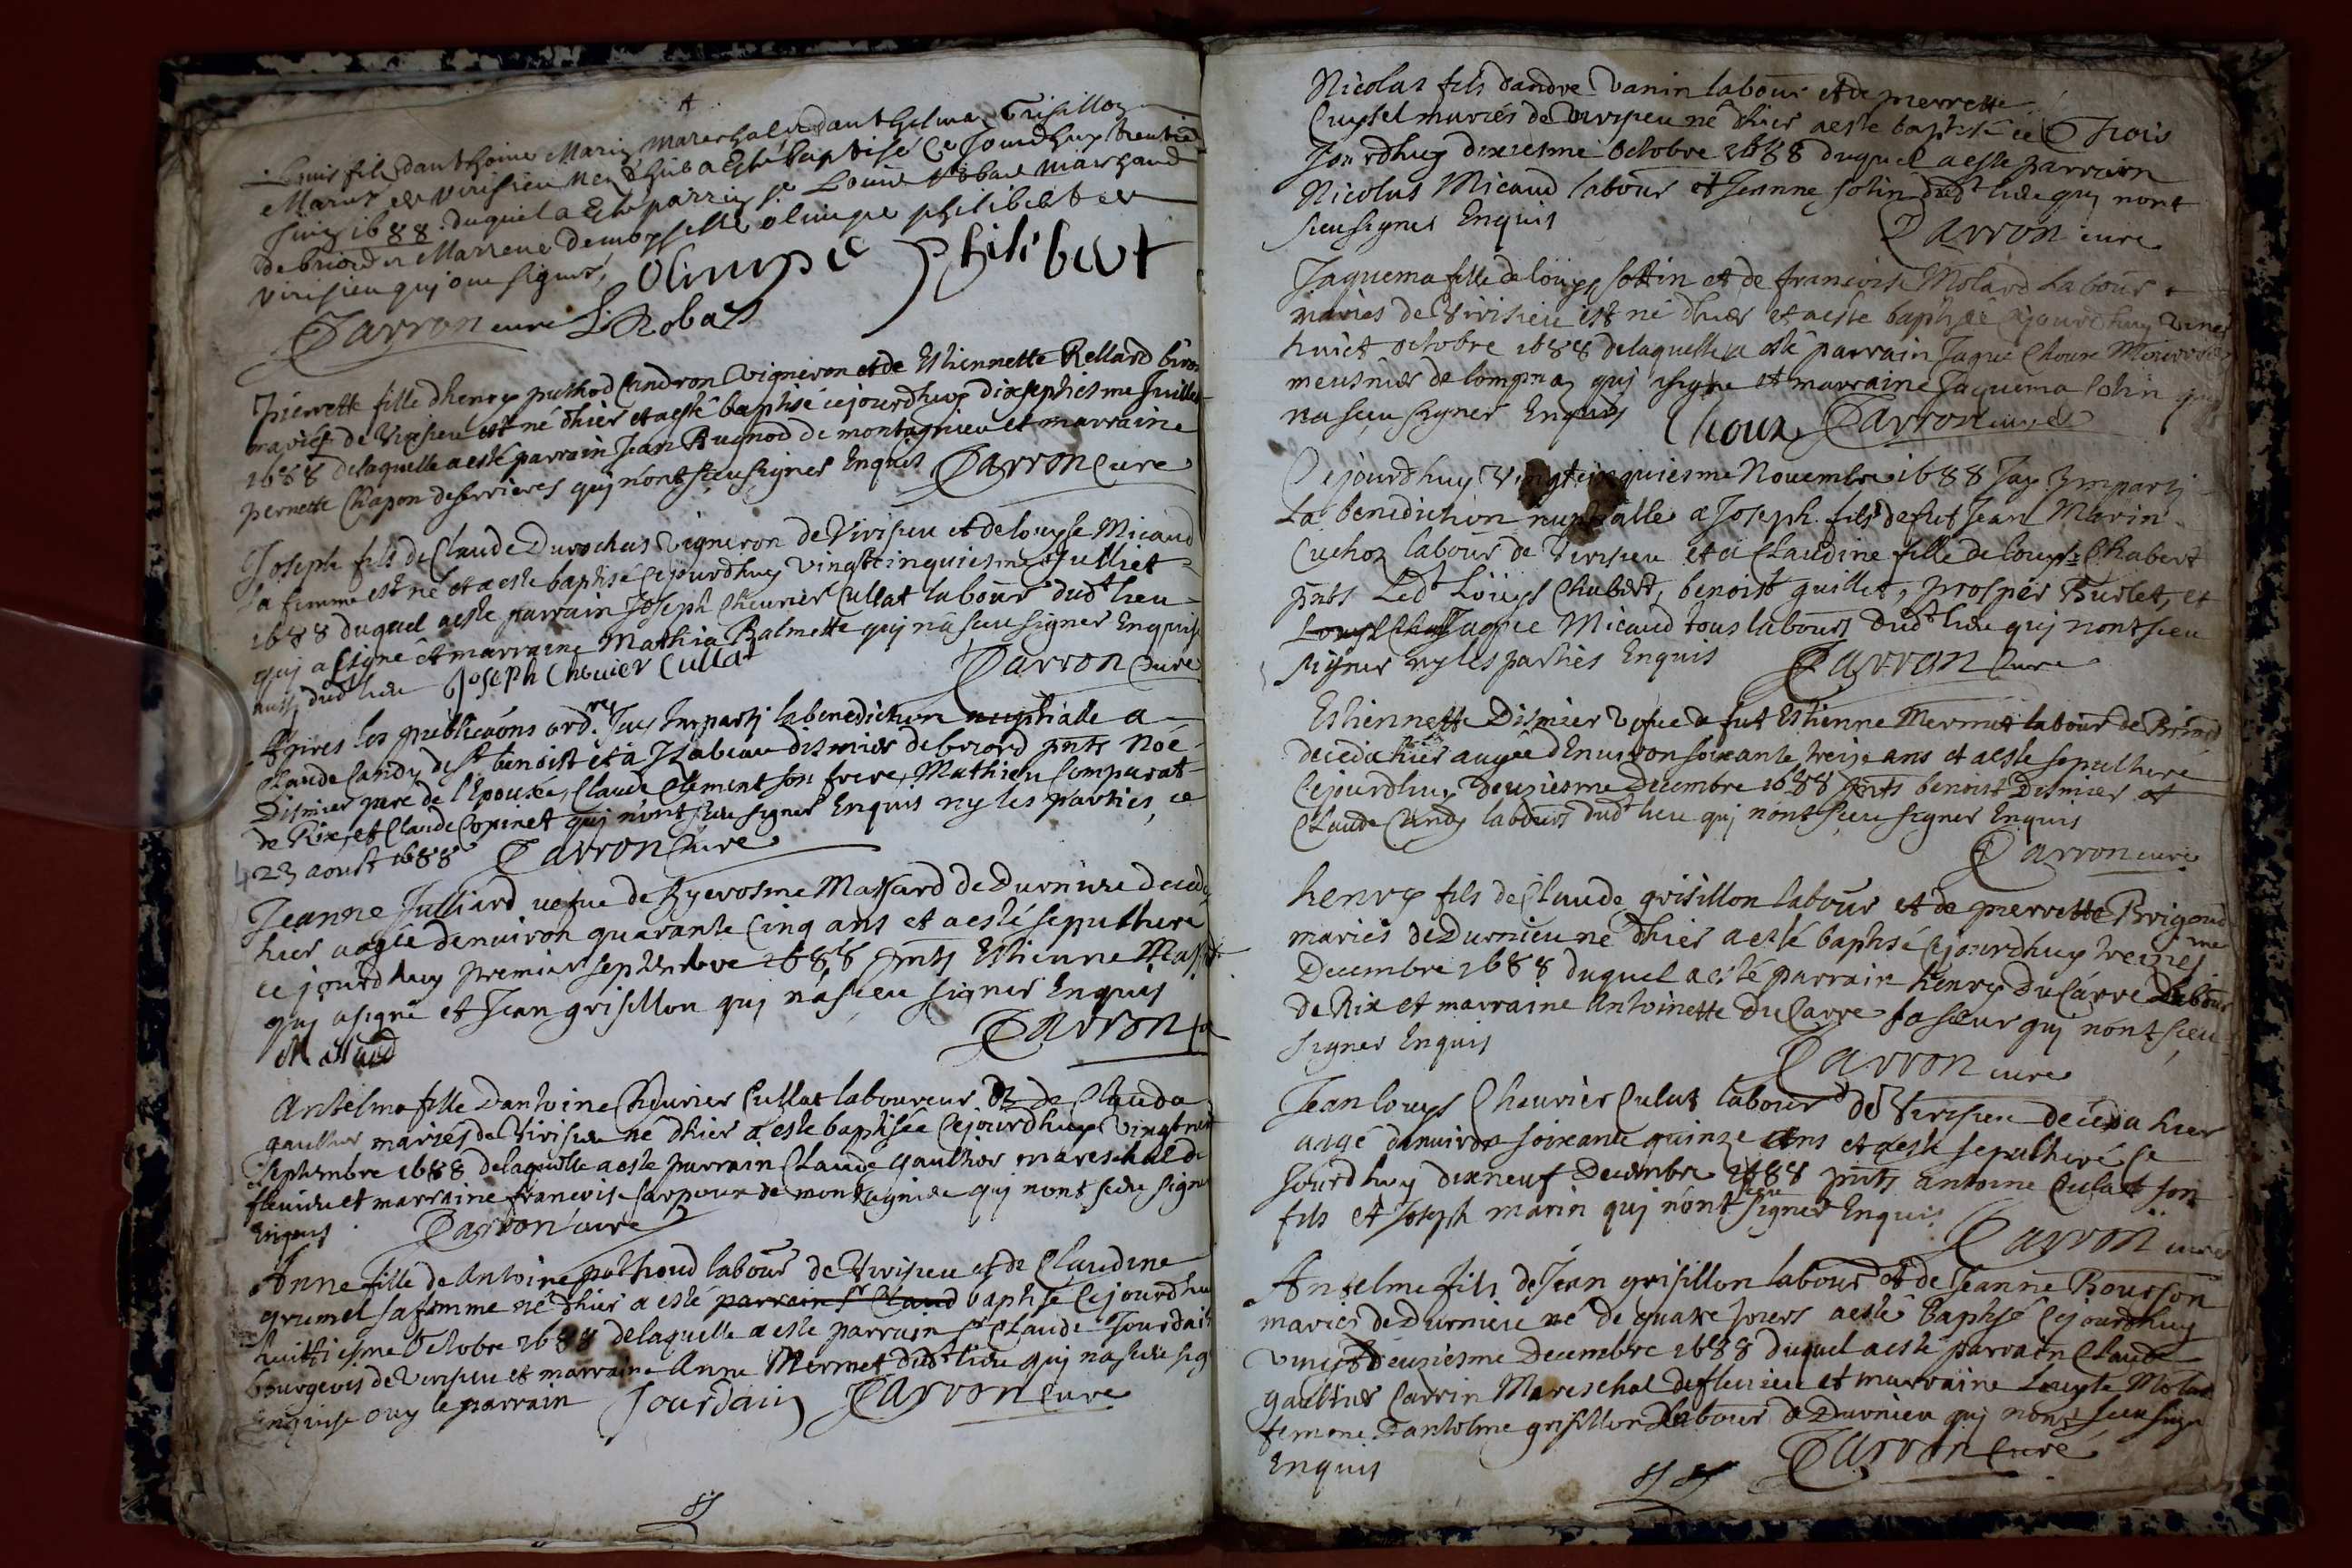 Louis fils danthoine Marin mareschal et danthelma Grisillon
Mariés de virisieu né d'hier a Esté baptisé Ce Jourdhuy trentie
Juin 1688. duquel a Esté parrin sr Louis Robat marchand
de briord et Marrene demoyselle olimpe philibert de
virisieu quj ont signés,
olimpe philibert
Darron cure L Robat
Pierrette fille dhenry puthod Candron vigneron et de Estiennette Rellard
mariés de Virisieu est né d'hier et a esté baptisé cejourdhuy dixseptiesme Juillet
1688 delaquelle a esté parrain Jean Rugnod de montagnieu et marraine
pernette Chapon deserrieres quj n'ont sceu signer Enquis Darron Cure
Joseph fils de Claude Durochat vigneron de Virisieu et de louyse Micaud
sa femme est né et a este baptisé Cejourdhuy vingtcinquiesme Julliet
1688 duquel a esté parrain Joseph Cheurier Cullat labour dudt lieu
quj a signé et marraine Mathia Balmette quj na sceu signer Enquise
aussj dudt lieu Joseph Cheuier Cullat Darron Cure
Apres les publicaons ordres Jay Imparty la benediction nuptialle a
Claude Candy de st benoist et a Ysabeau dismier de briord pnts Noé
Dismier pere de l'Epousée, Claude Clement son frere, Mathieu Comparat
de Rix, et Claude Copinet quj n'ont sceu signer Enquis ny les parties, ce
23 aoust 1688 Darron Cure
Jeanne Julliard uefue de hyerosme Massard de Durnieu deceda
hier aagée denuiron quarante Cinq ans et a esté sepulthere
cejourdhuy premier septembre 1688 pnts Estienne Mass
quj a signé et Jean grisillon quj na sceu signer Enquis
Massard Darron
Antelma fille Dantoine Cheurier Cullat laboureur Et de Clauda
gaulthier mariés de Virisieu né dhier a esté baptisée Cejourdhuy vingtneuf
septembre 1688 delaquelle a esté parrain Claude Gaulthier mareschal de
fleurieu et marraine francoise sarpoux de montagnieu quj n'ont sceu signer
Enquis Darron Cure
Anne fille de Antoine puthoud labour de Virisieu et de Claudine
grumel sa femme né dhier a esté parrain sr Claud baptisé Cejourdhuy
huittiesme octobre 1688 delaquelle a esté parrain sr Claude Jourdain
bourgeois de Virisieu et marraine Anne Mermet dudt lieu quj na sceu sig
Enquise ouy le parrain Jourdain Darron Cure
Nicolas fils dandre vanin labour et de pierrette
Cuysel mariés de virisieu né dhier a este baptisé ce Trois
Jourdhuy dixiesme octobre 1688 duquel a esté parrain
Nicolas Micaud labour et Jeanne sotin dudt lieu quj nont
sceu signer Enquis
Darron cure
Jaquema fille de louys sottin et de francoise Molard labour
mariés de Virisieu est né dhier et a esté baptisée cejourdhuy vingt
huict octobre 1688 delaquelle a esté parrain Jaque Choux
meusnier de lompnaz quj a signé et marraine Jaquema sotin quj
na sceu signer Enquis Choux Darron cure
Cejourdhuy vingtcinquiesme Nouembre 1688 Jay Imparty
La benediction nuptialle a Joseph fils de fut Jean Marin
Cuchoz labour de Virisieu et a Claudine fille de louys Chabert
pnts Ledt Louys Chabert, benoist guillet, prosper Burlet, et
Louys Chab Jaque Micaud tous labours dudt lieu quj nont sceu
signer ny les parties Enquis Darron Cure
Estiennette Dismier vefue de fut Estienne Mermet labour de Briord
deceda hier augée d'Enuiron soixante treize ans et a este sepulthere
Cejourdhuy Deuxiesme Decembre 1688 pnts benoist Dismier et
Claude Candy labours dudt lieu quj n'ont sceu signer Enquis
Darron cure
henry fils de Claude grisillon labour et de pierrette Brigoud
mariés de Durnieu né dhier a esté baptisé Cejourdhuy treziesme
Decembre 1688 duquel a esté parrain henry Du Carre labour
de Rix et marraine Antoinette Du Carre sa soeur quj nont sceu
signer Enquis
Darron cure
Jean louys Cheurier Culat labour de Virisieu deceda hier
augé denuiron soixante quinze ans et a esté sepultheré Ce
Jourdhuy dixneuf Decembre 1688 pnts Antoine Culat son
fils et Joseph marin quj n'ont sceu signer Enquis
Darron cure
Anselme fils de Jean grisillon labour et de Jeanne Bourson
mariés de Durnieu né de quatre Jours a esté baptisé Cejourdhuy
vingtdeuxiesme Decembre 1688 duquel a esté parrain Claude
gaulthier Carrin Mareschal de fleurieu et marraine Louyse Molar
femme Dantelme grisillon labour de Durnieu quj n'ont sceu signe
Enquis Darron Cure